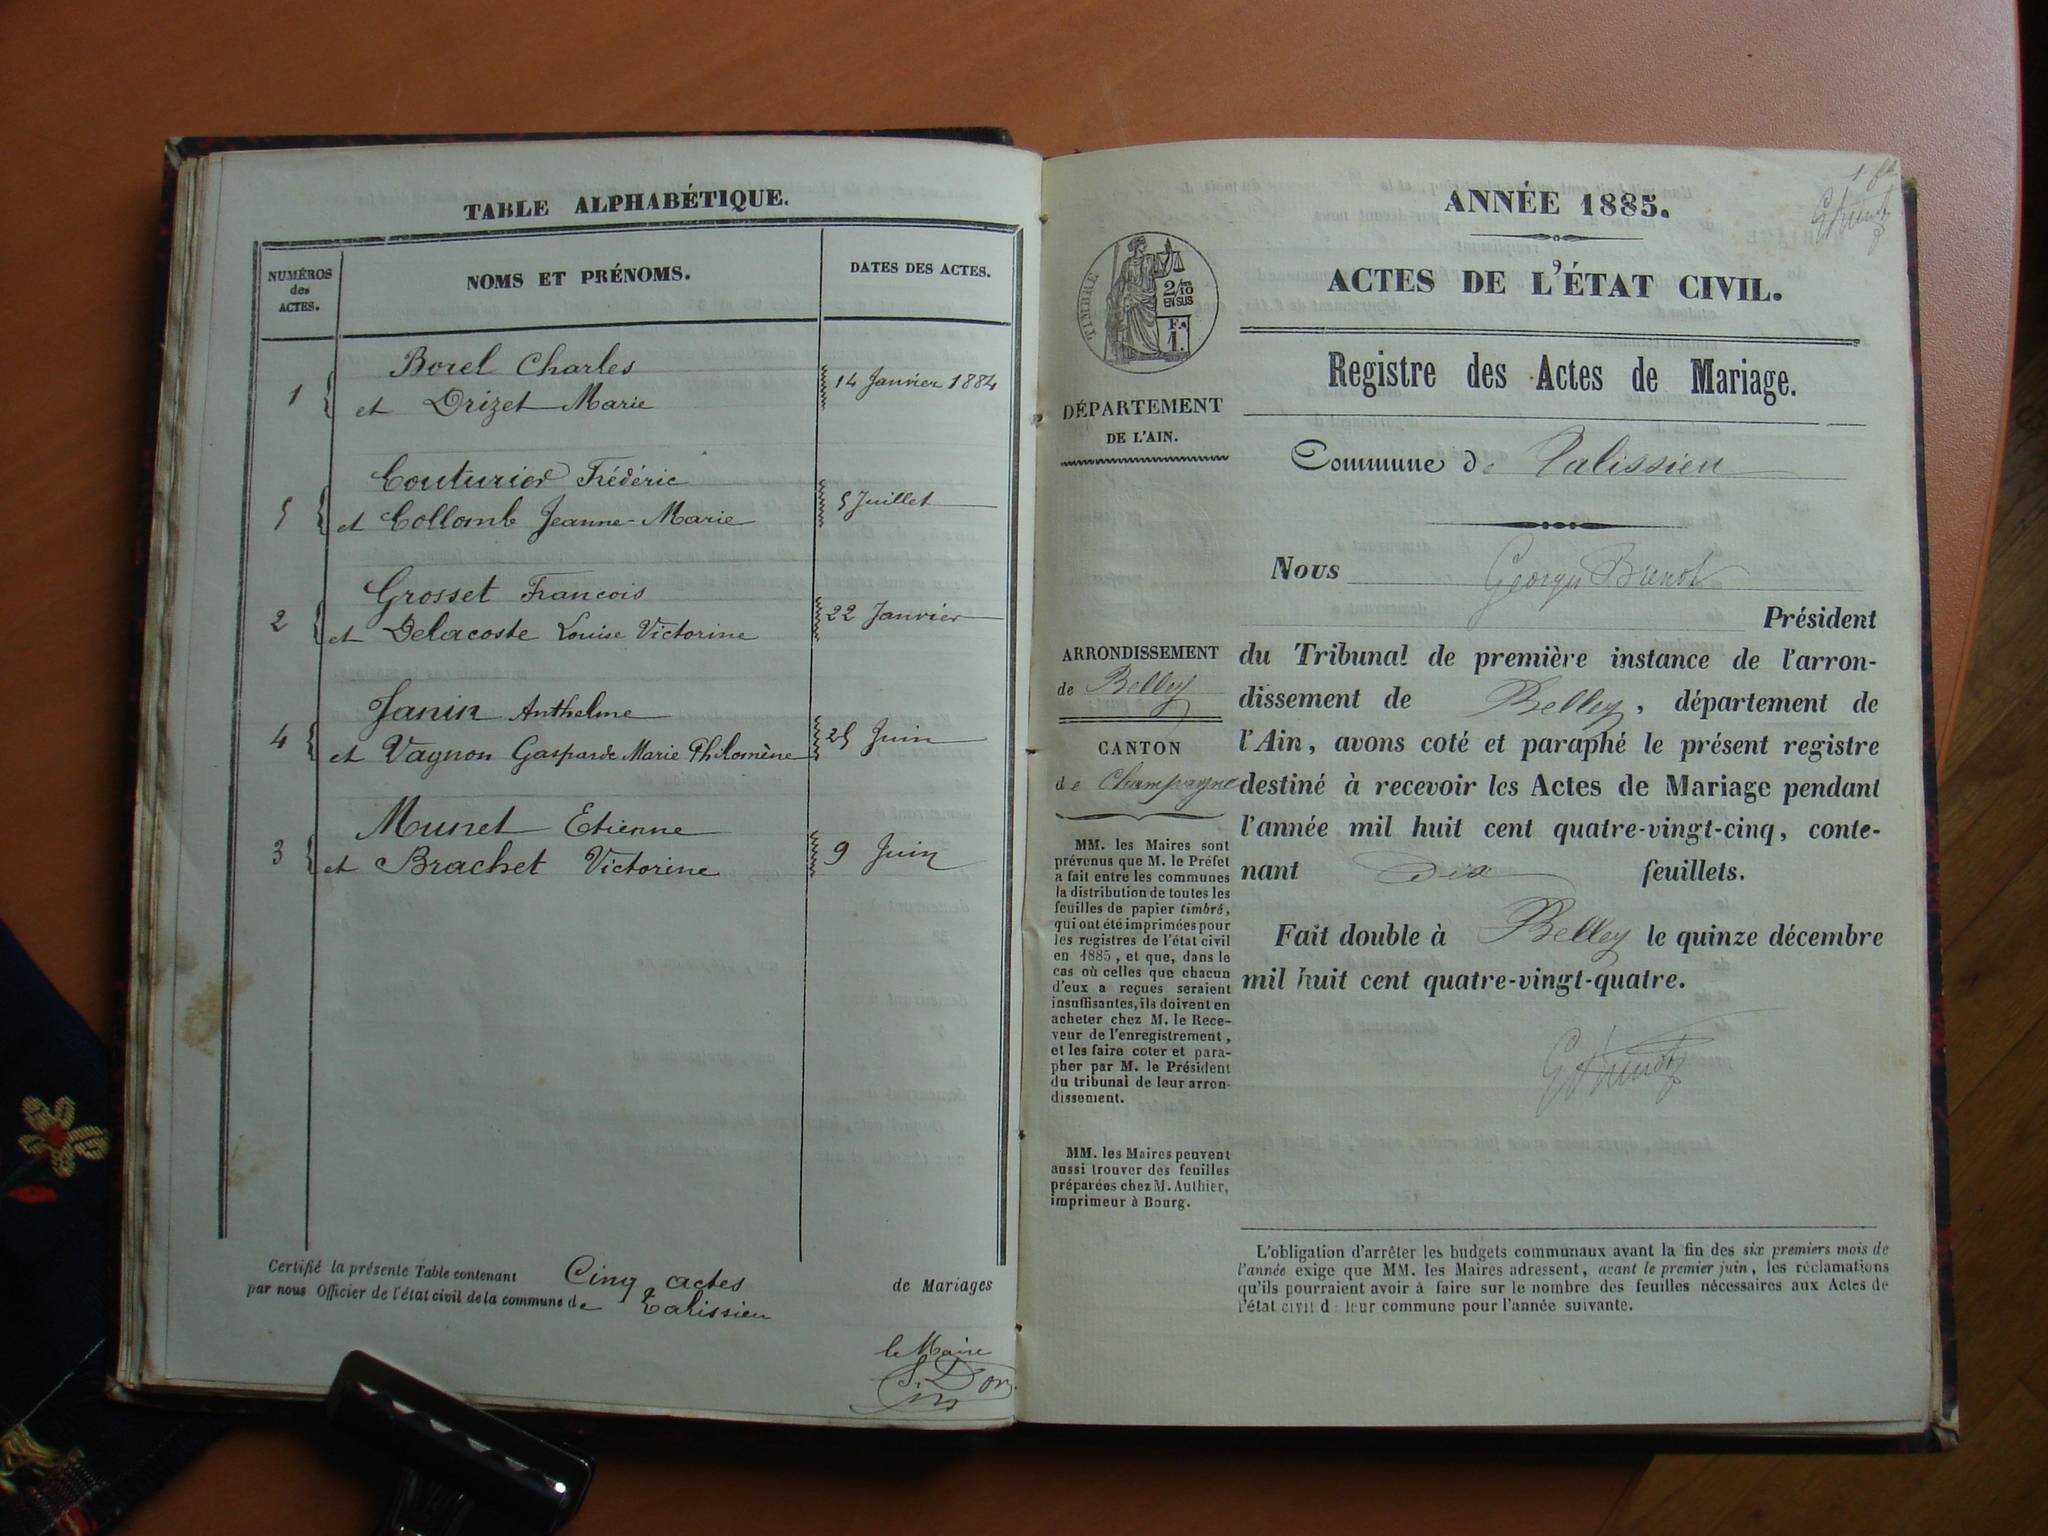 TABLE ALPHABÉTIQUE.
NUMÉROS
des
ACTES.
NOMS ET PRÉNOMS.
DATES DES ACTES.
Borel Charles
1 et Drizet Marie 14 Janvier 1884
Couturier Frédéric
5 et Collomb Jeanne-Marie 5 Juillet
Grosset Francois
2 et Delacoste Louise Victorine 22 Janvier
Janin Anthelme
4 et Vagnon Gasparde Marie Philomène 25 Juin
Munet Etienne
3 et Brachet Victorine 9 Juin
Certifié la présente Table contenant Cinq actes de Mariages
par nous Officier de l'état civil de la commune de Talissieu
le Maire
ANNÉE 1885.
ACTES DE L'ÉTAT CIVIL.
Registre des Actes de Mariage.
Commune de Talissieu
Nous Georges Brenot
Président
du Tribunal de première instance de l'arron-
dissement de Belley, département de
l'Ain, avons coté et paraphé le présent registre
destiné à recevoir les Actes de Mariage pendant
l'année mil huit cent quatre-vingt-cinq, conte-
nant Dix feuillets.
Fait double à Belley le quinze décembre
mil huit cent quatre-vingt-quatre.
TIMBRE
2/10
EN SUS
1.
DÉPARTEMENT
DE L'AIN.
ARRONDISSEMENT
de Belley
CANTON
de Champagne
MM. les Maires sont
prévenus que M. le Préfet
a fait entre les communes
la distribution de toutes les
feuilles de papier timbré,
qui ont été imprimées pour
les registres de l'état civil
en 1885, et que, dans le
cas où celles que chacun
d'eux a reçues seraient
insuffisantes, ils doivent en
acheter chez M. le Rece-
veur de l'enregistrement,
et les faire coter et para-
pher par M. le Président
du tribunal de leur arron-
dissement.
MM. les Maires peuvent
aussi trouver des feuilles
préparées chez M. Authier,
imprimeur à Bourg.
L'obligation d'arrêter les budgets communaux avant la fin des six premiers mois de
l'année exige que MM. les Maires adressent, avant le premier juin, les réclamations
qu'ils pourraient avoir à faire sur le nombre des feuilles nécessaires aux Actes de
l'état civil de leur commune pour l'année suivante.